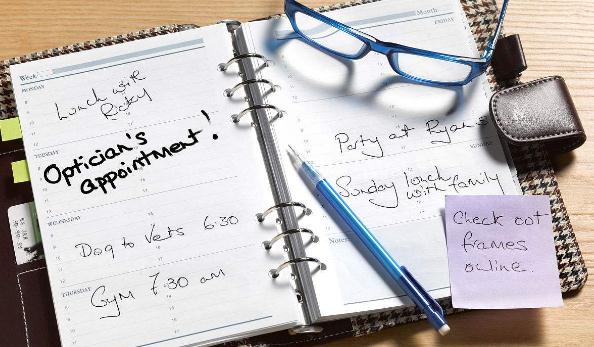 Week
MONDAY
Lunch with
Ricky
TUESDAY
Optician's
appointment!
WEDNESDAY
Dog to Vets 6:30
THURSDAY
Gym 7.30 am
Month
FRIDAY
Party at Ryan's
SUNDAY
Sunday lunch
with family
Notes
Check out
frames
online.